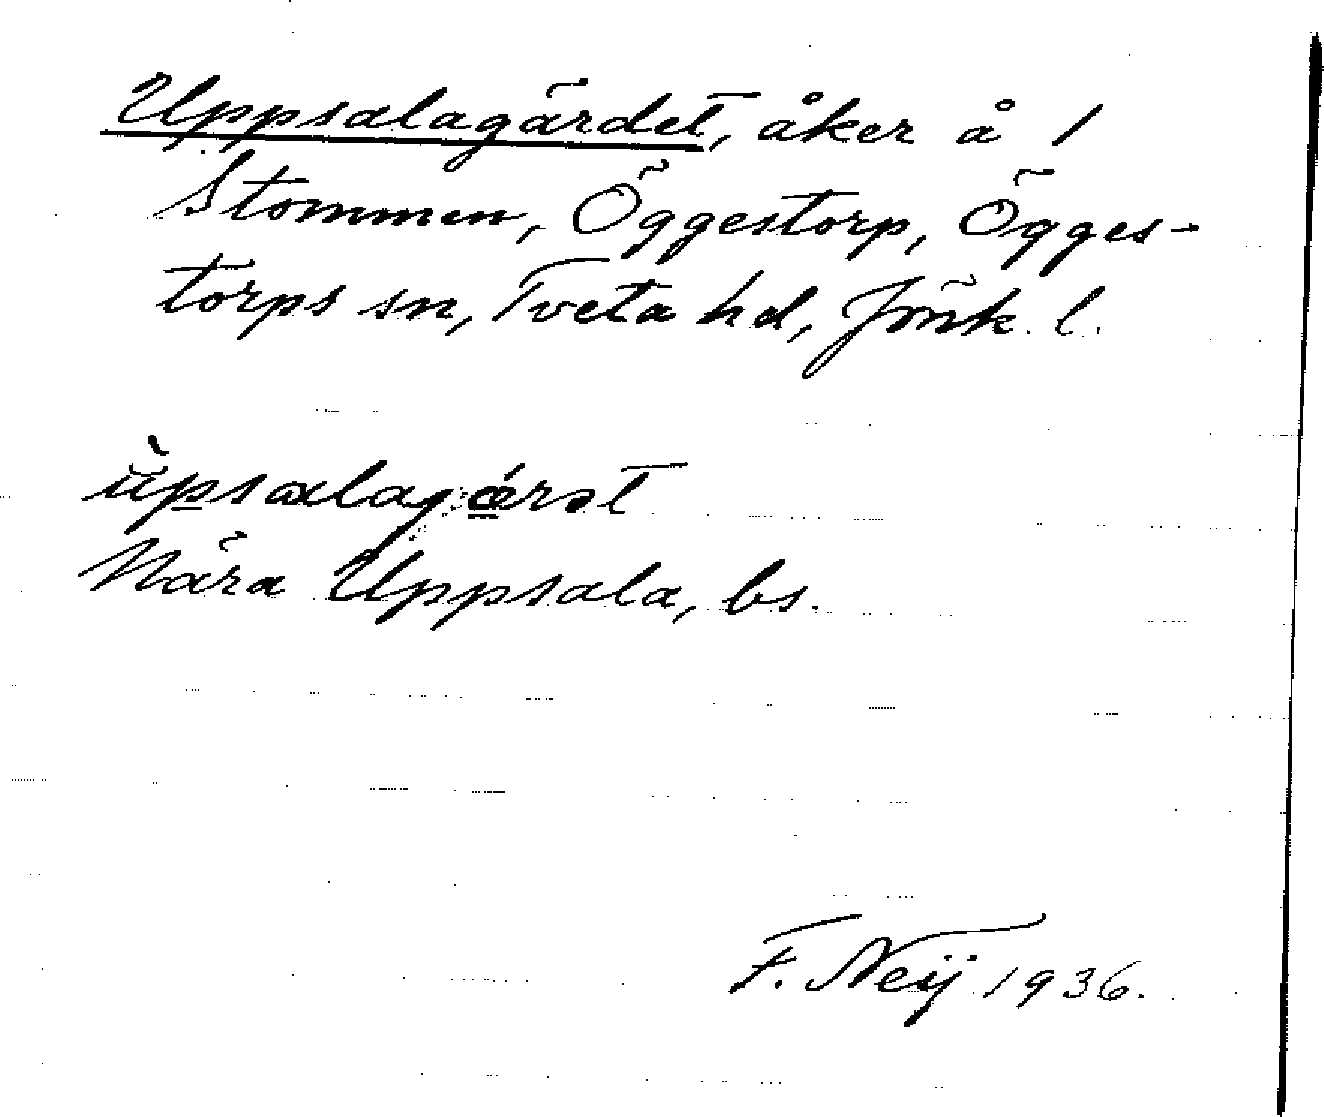 Uppsalagärdet, åker å 1
Stommen, Öggestorp, Ögges-
torps sn, Tveta hd, Jönk. l.
ùpsalagǽrət
Nära Uppsala, bs.
F. Neÿ 1936.